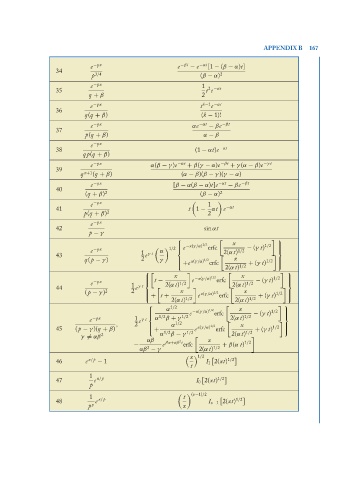 APPENDIX B 167
34 e^{-px} / p^{3/4} e^{-βt} − e^{-αt}[1 − (β − α)t] / (β − α)²
35 e^{-px} / q + β 1/2 t² e^{-αt}
36 e^{-px} / q(q + β) t^{k-1} e^{-αt} / (k − 1)!
37 e^{-px} / p(q + β) αe^{-αt} − βe^{-βt} / α − β
38 e^{-px} / qp(q + β) (1 − αt)e^{-αt}
39 e^{-px} / q^{n+1}(q + β) α(β − γ)e^{-αt} + β(γ − α)e^{-βt} + γ(α − β)e^{-γt} / (α − β)(β − γ)(γ − α)
40 e^{-px} / (q + β)² [β − α(β − α)t]e^{-αt} − βe^{-βt} / (β − α)²
41 e^{-px} / p(q + β)² t (1 − 1/2 αt) e^{-αt}
42 e^{-px} / p − γ sin αt
43 e^{-px} / q(p − γ) 1/2 e^{γt} (α/γ)^{1/2} { e^{-x(γ/α)^{1/2}} erfc [ x / 2(αt)^{1/2} − (γt)^{1/2} ]
+e^{x(γ/α)^{1/2}} erfc [ x / 2(αt)^{1/2} + (γt)^{1/2} ] }
44 e^{-px} / (p − γ)² 1/2 e^{γt} { [ t − x / 2(αt)^{1/2} ] e^{-x(γ/α)^{1/2}} erfc [ x / 2(αt)^{1/2} − (γt)^{1/2} ]
+ [ t + x / 2(αt)^{1/2} ] e^{x(γ/α)^{1/2}} erfc [ x / 2(αt)^{1/2} + (γt)^{1/2} ] }
45 e^{-px} / (p − γ)(q + β)' γ ≠ αβ² 1/2 e^{γt} { α^{1/2} / α^{1/2}β + γ^{1/2} e^{-x(γ/α)^{1/2}} erfc [ x / 2(αt)^{1/2} − (γt)^{1/2} ]
+ α^{1/2} / α^{1/2}β − γ^{1/2} e^{x(γ/α)^{1/2}} erfc [ x / 2(αt)^{1/2} + (γt)^{1/2} ] }
− αβ / αβ² − γ e^{βx+αβ²t} erfc [ x / 2(αt)^{1/2} + β(αt)^{1/2} ]
46 e^{x/p} − 1 (x/t)^{1/2} I₁ [2(xt)^{1/2}]
47 1/p e^{x/p} I₀ [2(xt)^{1/2}]
48 1/p^{ν} e^{x/p} (t/x)^{(ν−1)/2} I_{ν−1} [2(xt)^{1/2}]